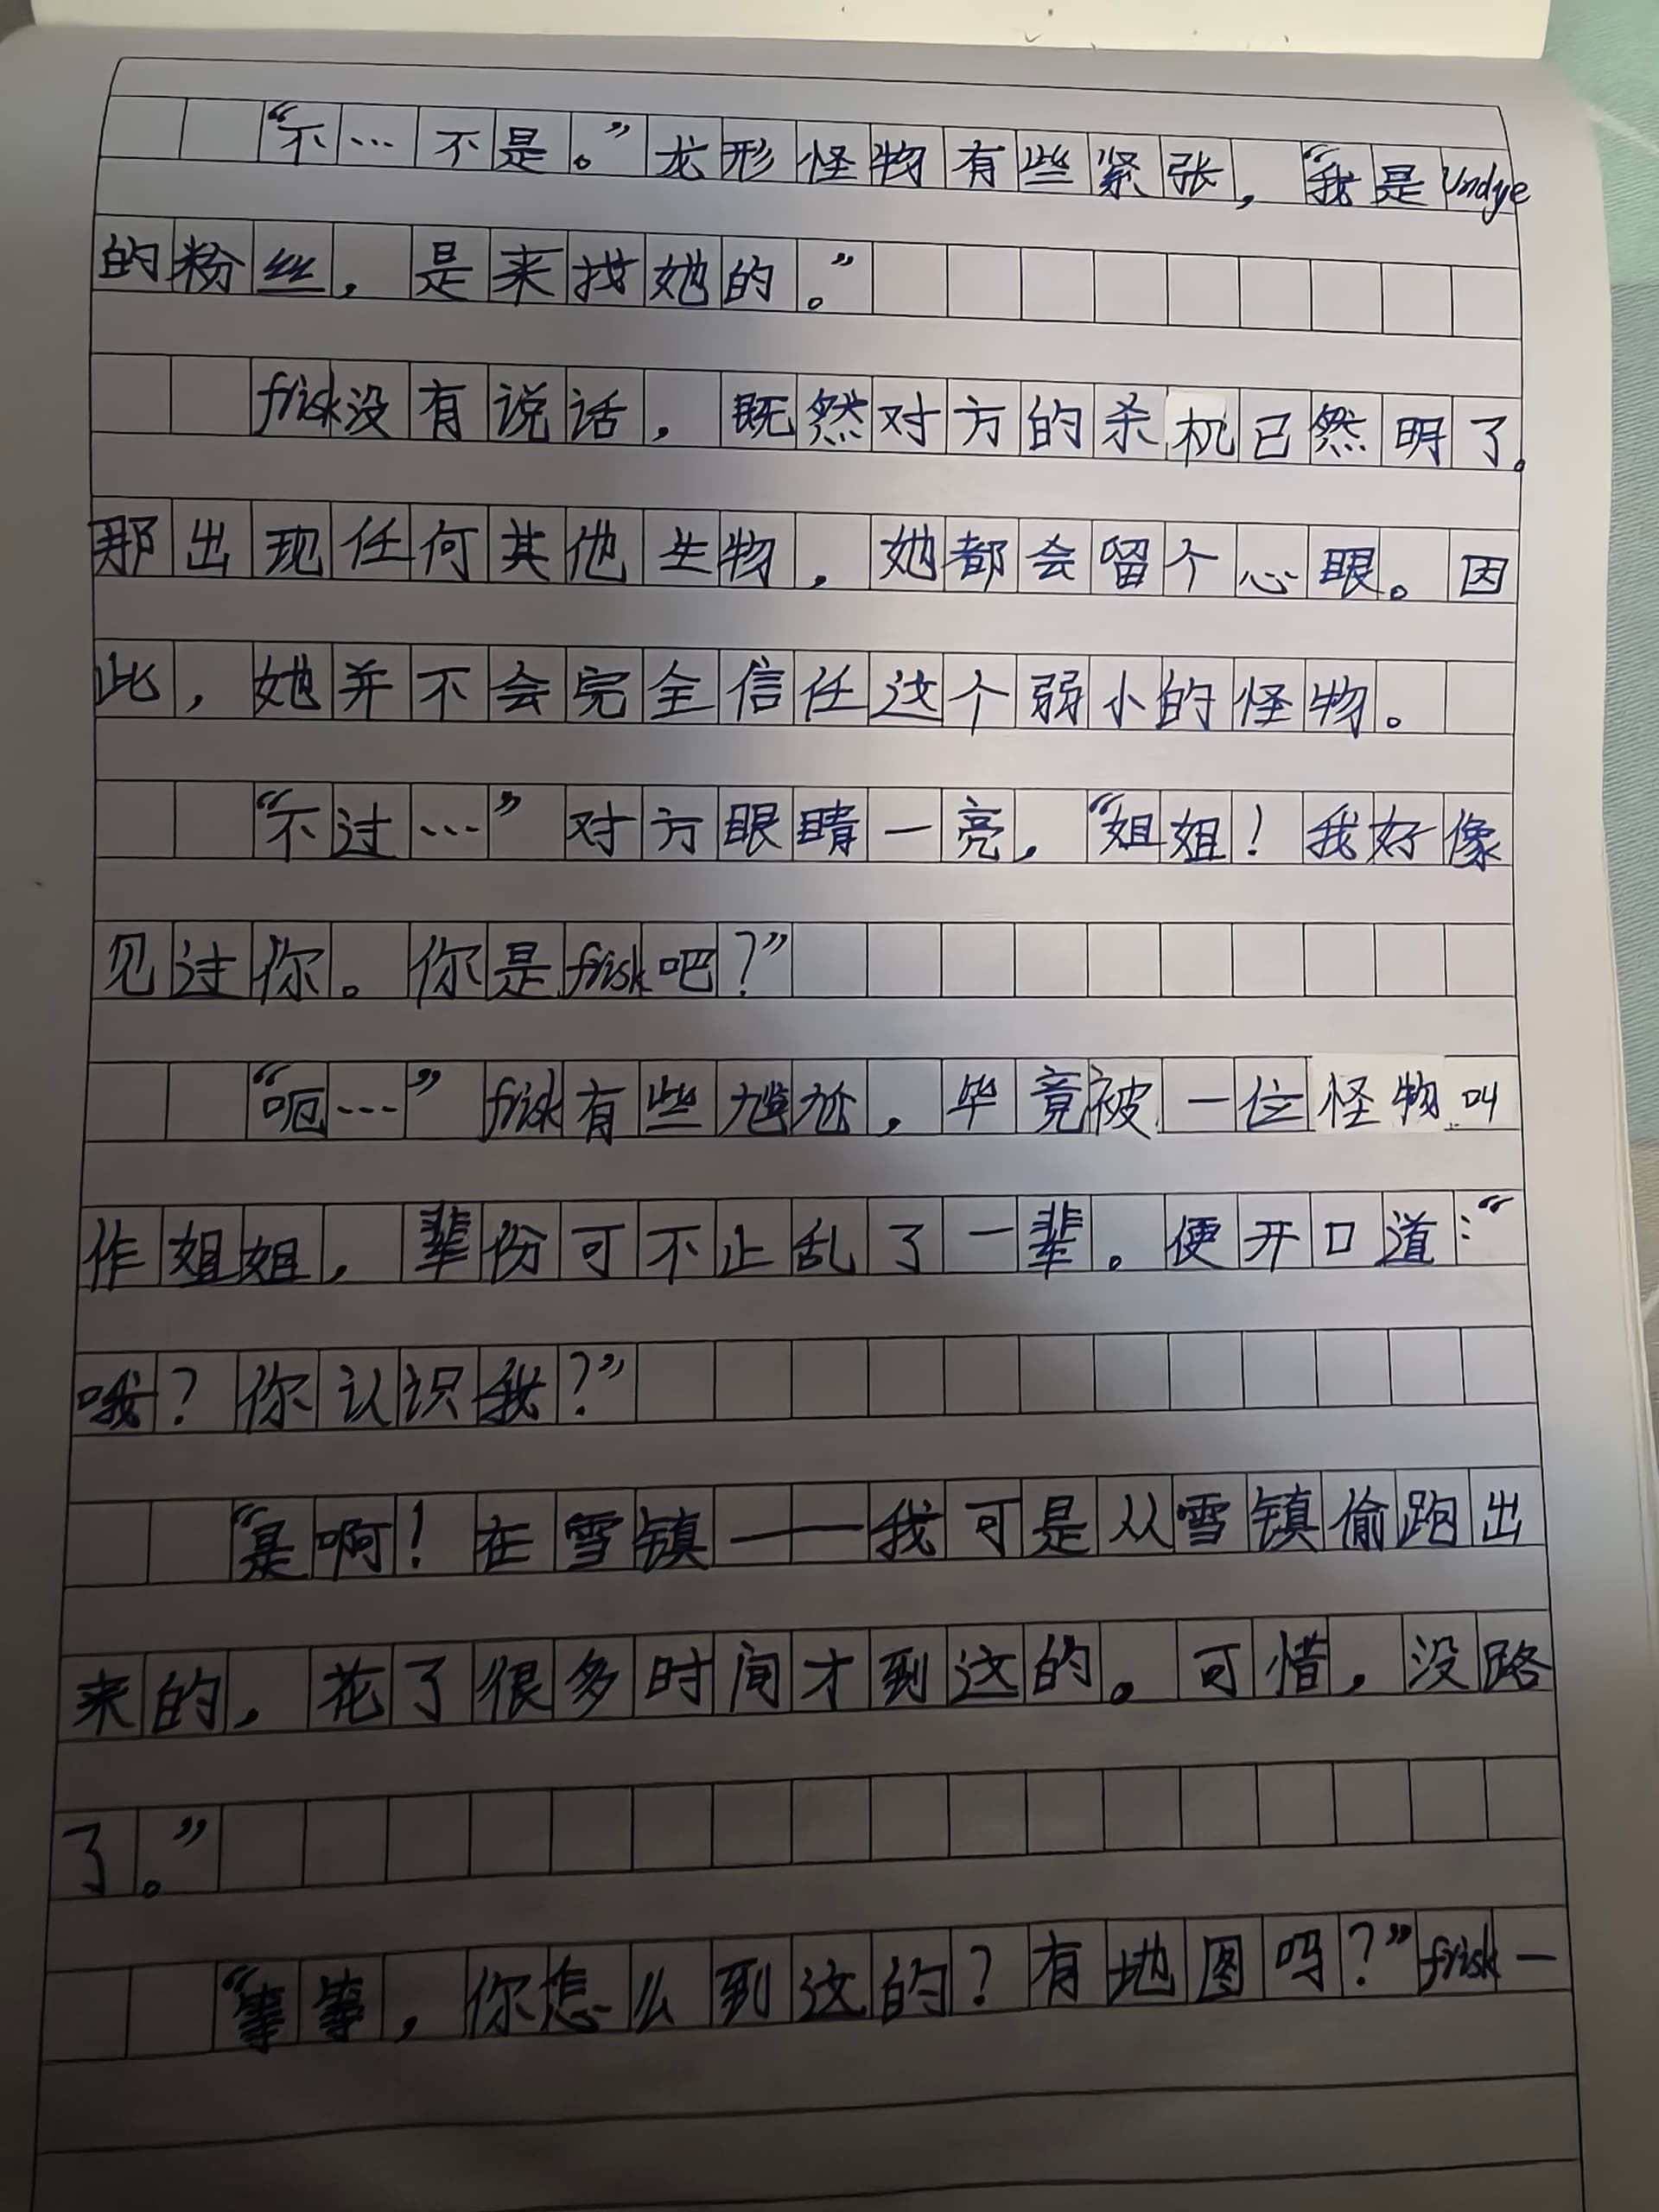 “不…不是。”龙形怪物有些紧张，“我是Undye
的粉丝，是来找她的。”
frisk没有说话，既然对方的杀机已然明了。
那出现任何其他生物，她都会留个心眼。因
此，她并不会完全信任这个弱小的怪物。
“不过…”对方眼睛一亮，“姐姐！我好像
见过你。你是frisk吧？”
“呃…”frisk有些尴尬，毕竟被一位怪物叫
作姐姐，辈份可不止乱了一辈。便开口道：“
哦？你认识我？”
“是啊！在雪镇——我可是从雪镇偷跑出
来的，花了很多时间才到这的。可惜，没路
了。”
“等等，你怎么到这的？有地图吗？”frisk一